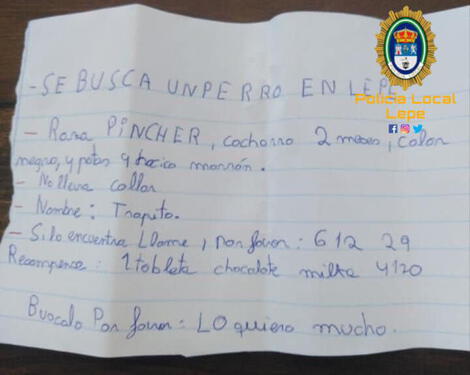 Policía Local
Lepe
- SE BUSCA UN PERRO EN LEPE
- Rasa PINCHER, cachorro 2 meses, color
negro, y patas y hocico marrón.
- No lleva collar
- Nombre: Trapito.
- Si lo encuentra Llame, por favor: 612 29
Recompence: 1 tableta chocolate milka 4120
Buscalo Por favor: LO quiero mucho.